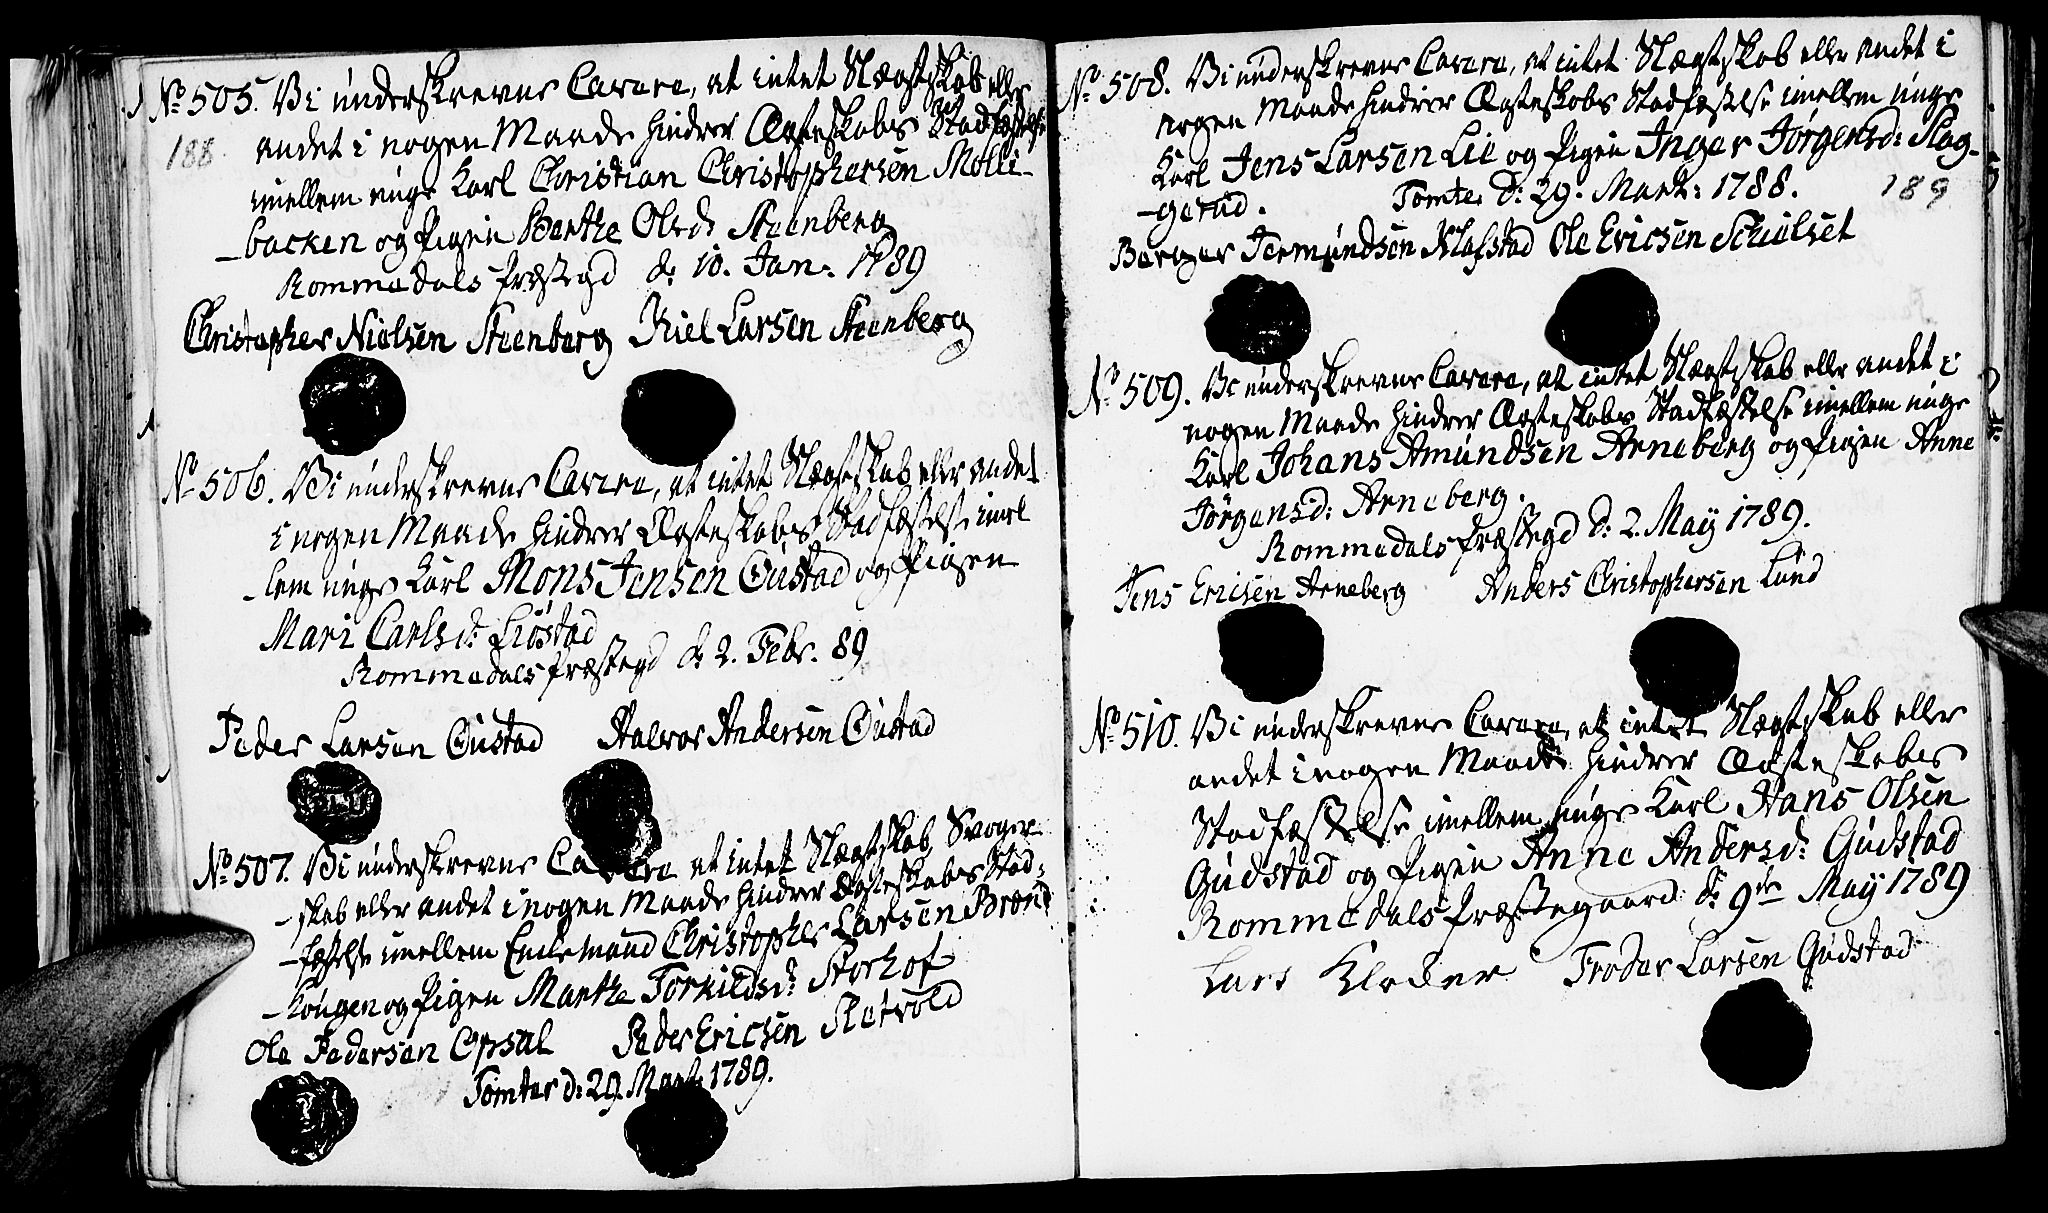 No 505. Vi underskrevne Cavera, at intet Slægtskab eller
188
andet i nogen Maade hindrer Ægteskabs Stadfæstelse
imellem unge Karl Christian Christophersen Molli-
-backen og Pigen Berthe Olsd: Steenberg
Rommedals Præstegd d: 10. Jan: 1789
Christopher Nielsen Steenberg Kiel Larsen Steenberg
No 506. Vi underskrevne Cavera, at intet Slægtskab eller andet
i nogen Maade hindrer Ægteskabs Stadfæstelse imel
-lem unge Karl Mons Jensen Gustad og Pigen
Mari Carlsd: Liøstad
Rommedals Præstegd d: 2. Febr. 89
Peder Larsen Gustad Halvor Andersen Gustad
No 507. Vi underskrevne Cavera at intet Slægtskab, Svoger
-skab eller andet i nogen Maade hindrer Ægteskabs Stad-
-fæstelse imellem Enkemand Christopher Larsen Brønd
-kougen og Pigen Marthe Torkildsd: Storhof
Ole Pedersen Opsal Peder Ericsen Sletvold
Tomter d: 29. Mart: 1789.
No 508. Vi underskrevne Cavera, at intet Slægtskab eller andet i
nogen Maade hindrer Ægteskabs Stadfæstelse imellem unge
Karl Jens Larsen Lie og Pigen Inger Jørgensd: Slag-
-gerud. Tomter d: 29. Mart: 1788.
189
Berger Termundsen Klafstad Ole Ericsen Schiølset
No 509. Vi underskrevne Cavera, at intet Slægtskab eller andet i
nogen Maade hindrer Ægteskabs Stadfæstelse imellem unge
Karl Johans Amundsen Arneberg og Pigen Anne
Jørgensd: Arneberg.
Rommedals Præstegd d: 2. May 1789.
Jens Ericsen Arneberg Anders Christophersen Lund
No 510. Vi underskrevne Cavera, at intet Slægtskab eller
andet i nogen Maade hindrer Ægteskabs
Stadfæstelse imellem unge Karl Hans Olsen
Gudstad og Pigen Anne Andersd: Gudstad
Rommedals Præstegaard d: 9de May 1789
Lars Kloder Troder Larsen Gudstad